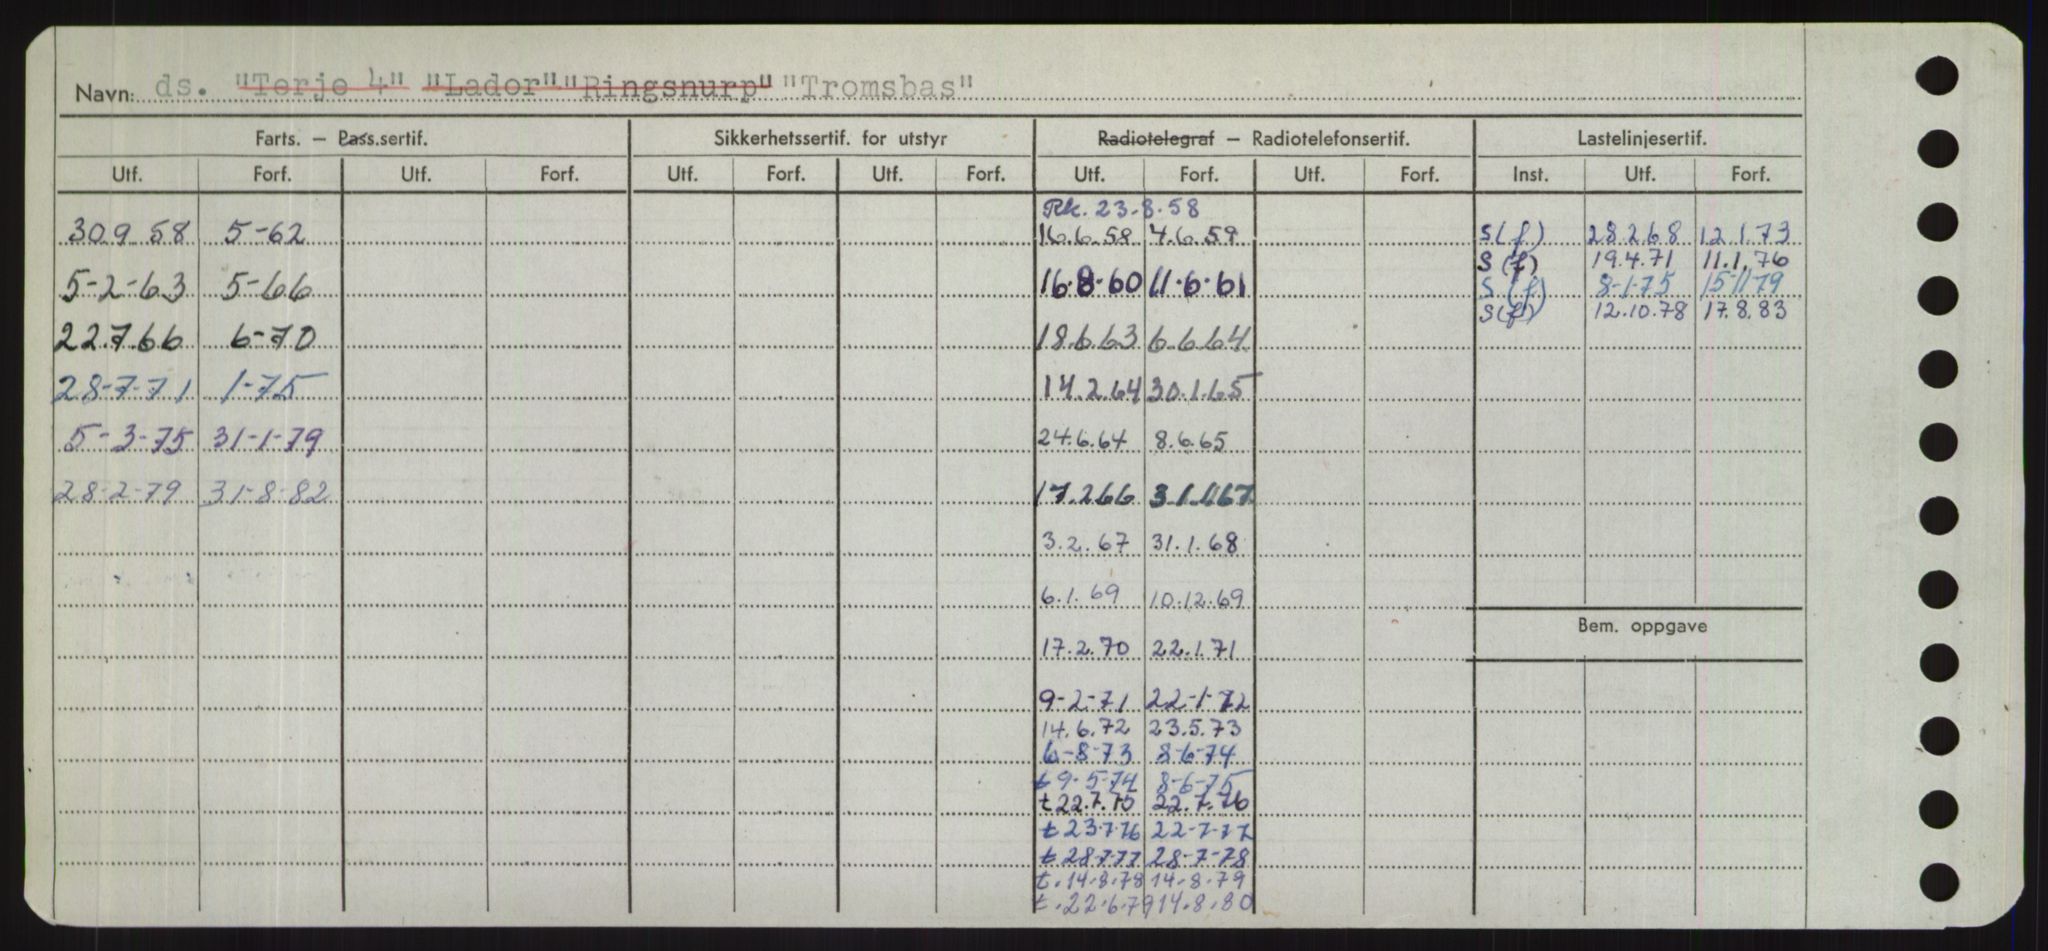 Navn: ds. "Terje 4" "Lador" "Ringsnurp" "Tromsbas"
Farts. — Pass.sertif. Sikkerhetssertif. for utstyr Radiotelegraf — Radiotelefonsertif. Lastelinjesertif.
Utf. Forf. Utf. Forf. Utf. Forf. Utf. Forf. Utf. Forf. Utf. Forf. Inst. Utf. Forf.
Rk. 23.8.58
30.9.58 5-62 16.6.58 4.6.59 S(f) 28.2.68 12.1.73
S(f) 19.4.71 11.1.76
5-2-63 5-66 16.8.60 11.6.61 S(f) 8-1-75 15-11-79
S(f) 12.10.78 17.8.83
22.7.66 6-70 18.6.63 6.6.64
28-7-71 1-75 14.2.64 30.1.65
5-3-75 31-1-79 24.6.64 8.6.65
28-2-79 31-8-82 17.2.66 31.1.67
3.2.67 31.1.68
6.1.69 10.12.69
Bem. oppgave
17.2.70 22.1.71
9-2-71 22-1-72
14.6.72 23.5.73
6-8-73 8-6-74
t 9-5-74 8-6-75
t 22.7.75 22.7.76
t 23.7.76 22-7-77
t 28.7.77 28-7-78
t. 14.8.78 14.8.79
t. 22.6.79 14.8.80